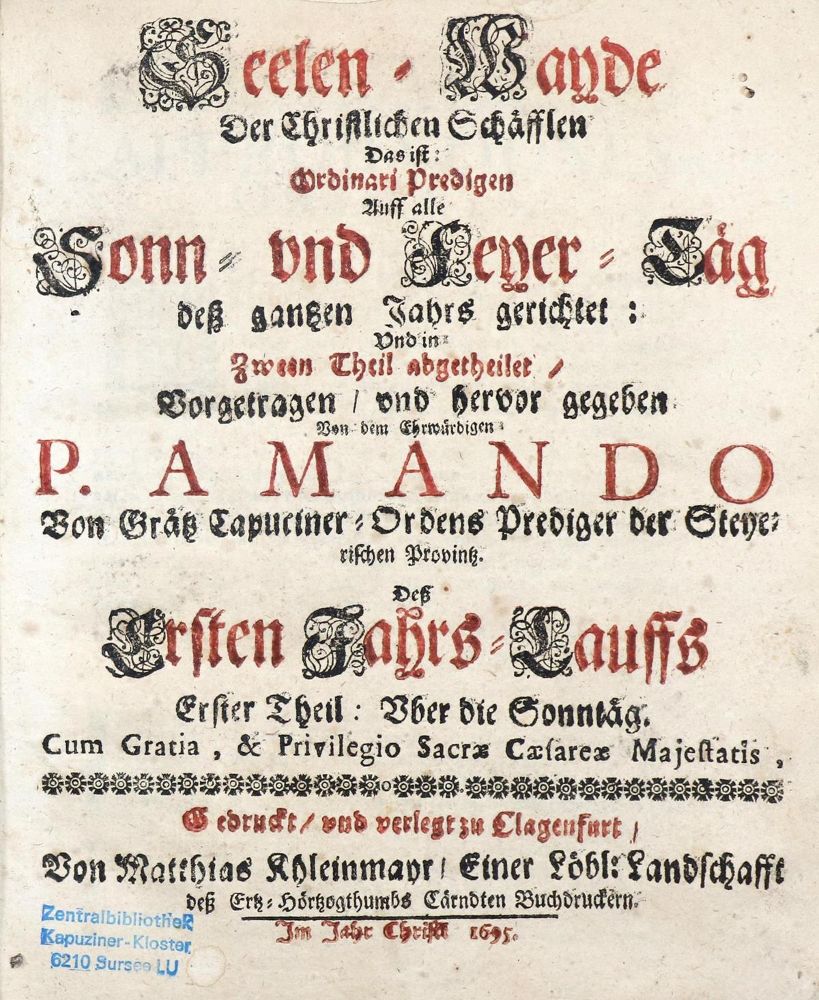 Seelen-Wayde
Der Christlichen Schäfflen
Das ist:
Ordinari Predigen
Auff alle
Sonn- vnd Feyer-Täg
deß gantzen Jahrs gerichtet:
Vnd in
Zween Theil abgetheilet /
Vorgetragen / vnd hervor gegeben
Von dem Ehrwürdigen
P. AMANDO
Von Grätz Capuciner-Ordens Prediger der Steye-
rischen Provintz.
Deß
Ersten Jahrs-Lauffs
Erster Theil: Vber die Sonntäg.
Cum Gratia, & Privilegio Sacræ Cæsareæ Majestatis,
Gedruckt / vnd verlegt zu Clagenfurt /
Von Matthias Khleinmayr / Einer Löbl: Landschafft
deß Ertz-Hörtzogthumbs Cärndten Buchdruckern.
Im Jahr Christi 1695.
Zentralbibliothek
Kapuziner-Kloster
6210 Sursee LU